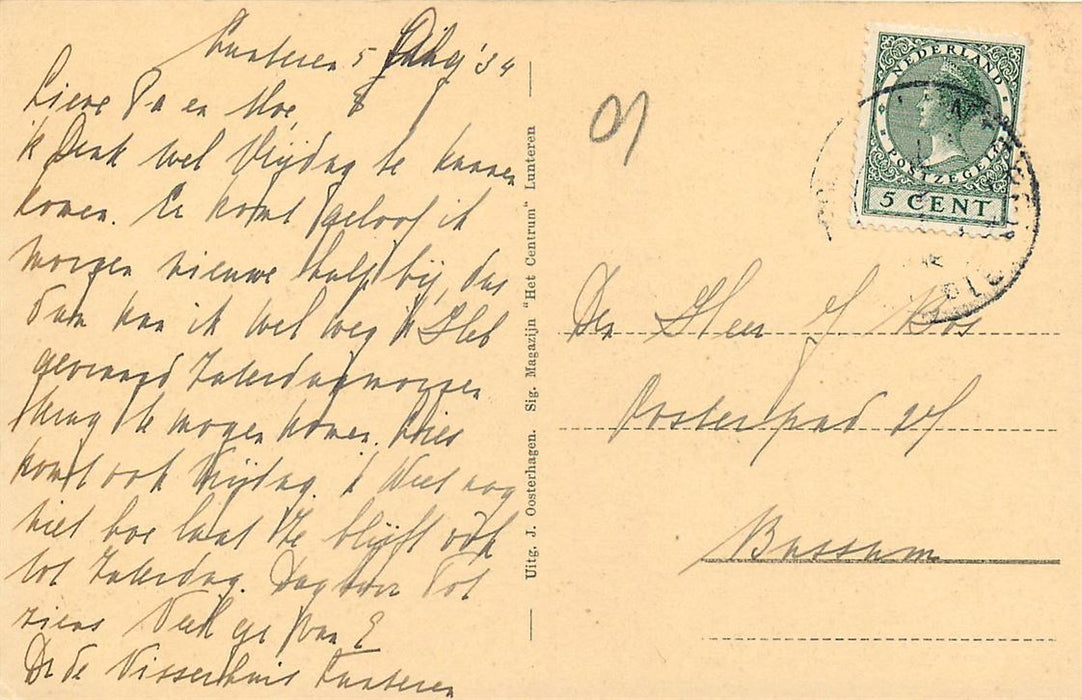 Lunteren 5 '34
Lieve Pa en Moe,
ik Denk wel Vrijdag te kunnen
komen. Er komt geloof ik
morgen nieuwe hulp bij, dus
dan kan ik wel weg k Heb
gevraagd Zaterdagmorgen
terug te mogen komen. Lies
komt ook Vrijdag. k Weet nog
niet hoe laat Ze blijft ook
tot Zaterdag. Dag hoor Tot
ziens Veel van E
De Visscherhuis Lunteren
Uitg. J. Oosterhagen. Sig. Magazijn "Het Centrum" Lunteren
NEDERLAND
POSTZEGEL
5 CENT
Den Heer J Bos
Oosterpad
Bussum